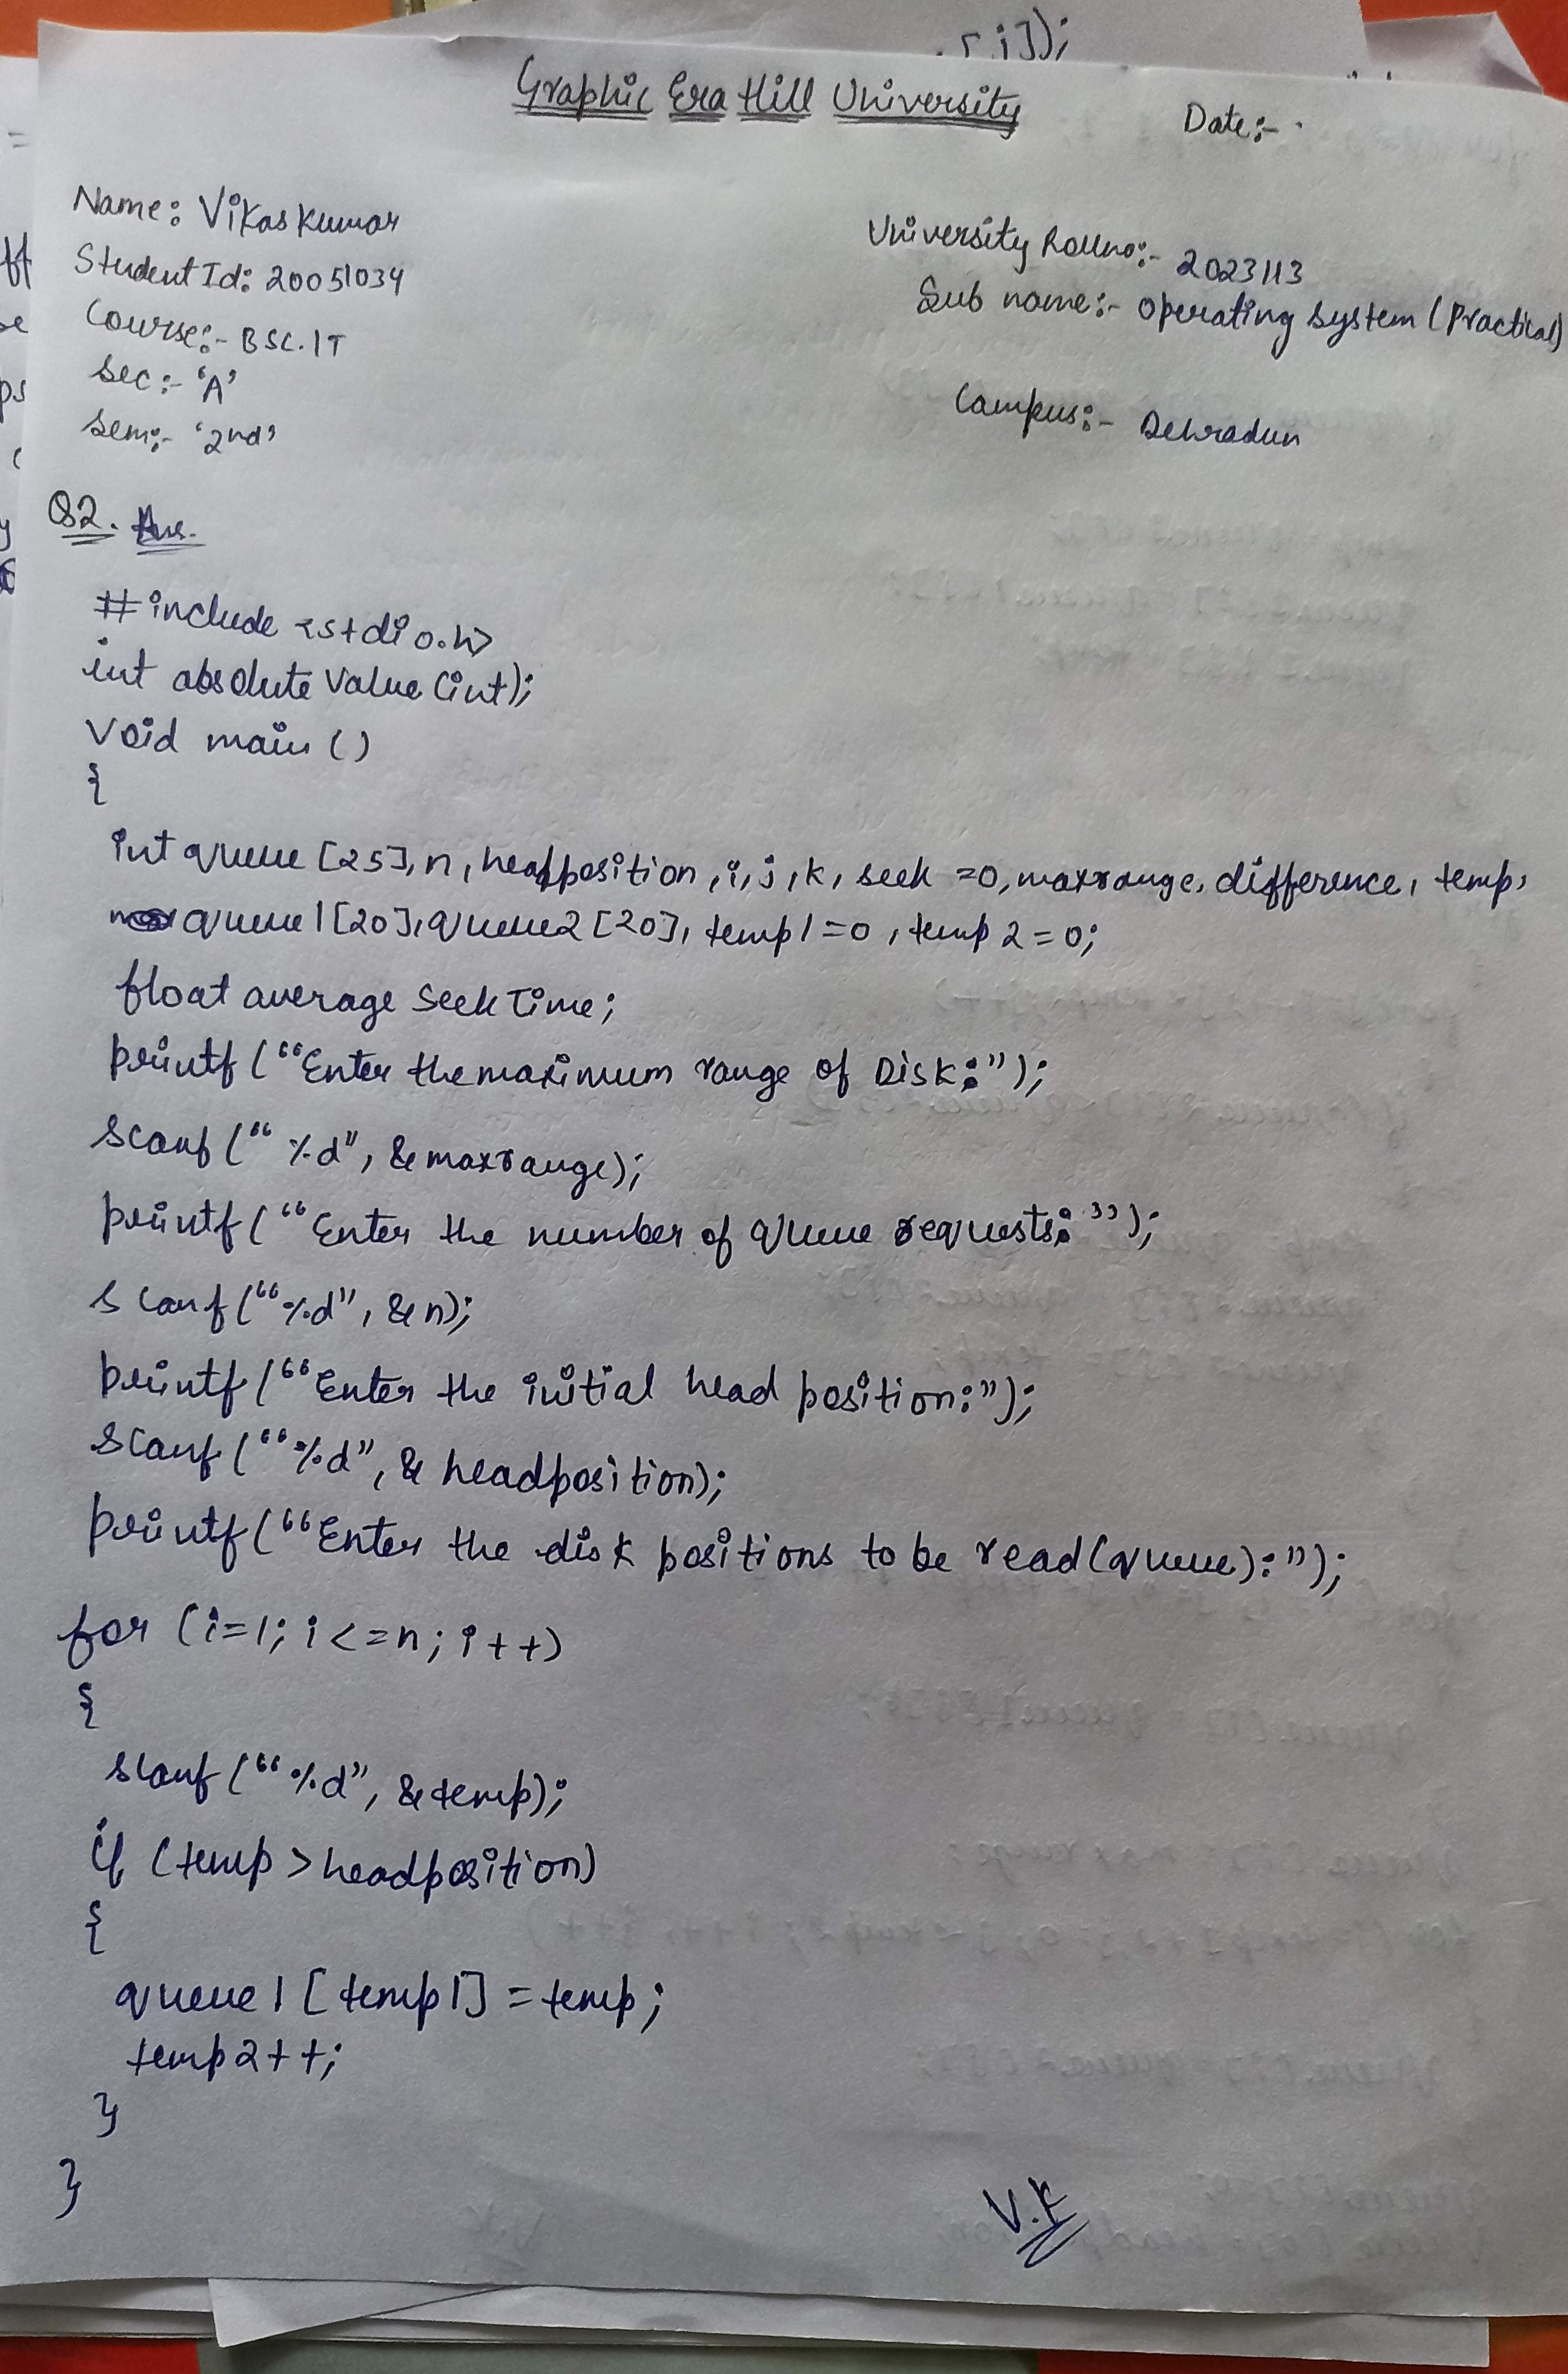 r i]);
Graphic Era Hill University
Date:-
Name: Vikas Kumar
University Rollno:- 2023113
Student Id: 20051034
Sub name:- Operating System (Practical)
Course:- BSC.IT
Sec:- 'A'
Campus:- Dehradun
Sem:- '2nd'
Q2. Ans.
#include <stdio.h>
int absolute Value (int);
Void main ()
{
int queue [25], n, headposition, i, j, k, seek =0, maxrange, difference, temp,
queue1[20], queue2 [20], temp1=0, temp2=0;
float average Seek Time;
printf ("Enter the maximum range of Disk:");
Scanf ("%d", &maxrange);
printf ("Enter the number of queue requests:");
Scanf ("%d", &n);
printf ("Enter the initial head position:");
Scanf ("%d", & headposition);
printf ("Enter the disk positions to be read (queue):");
for (i=1; i<=n; i++)
{
Scanf ("%d", &temp);
if (temp > headposition)
{
queue1 [temp1] = temp;
temp2++;
}
}
V.K